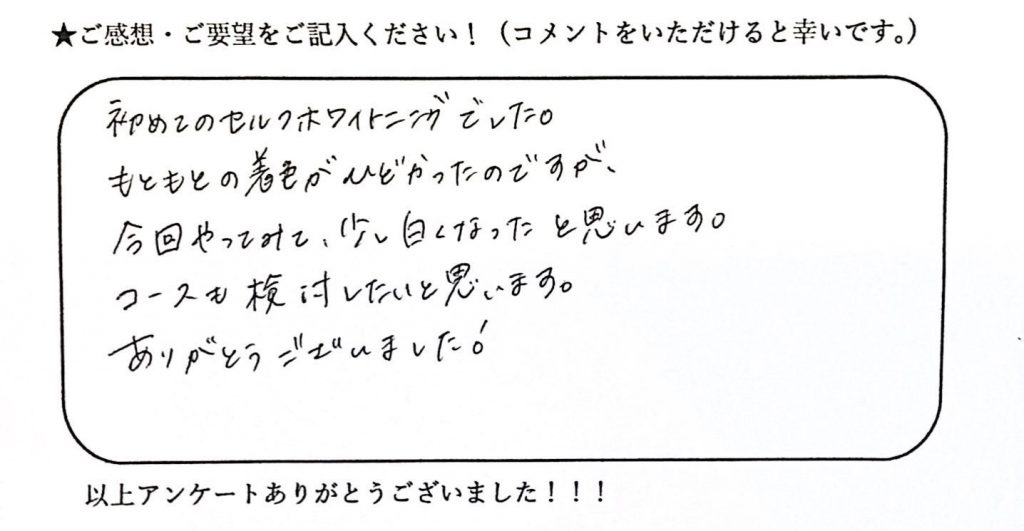 ★ご感想・ご要望をご記入ください！（コメントをいただけると幸いです。）
初めてのセルフホワイトニングでした。
もともとの着色がひどかったのですが、
今回やってみて、少し白くなったと思います。
コースも検討したいと思います。
ありがとうございました！
以上アンケートありがとうございました！！！